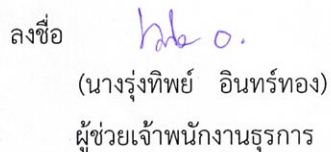 ลงชื่อ
(นางรุ่งทิพย์ อินทร์ทอง)
ผู้ช่วยเจ้าพนักงานธุรการ